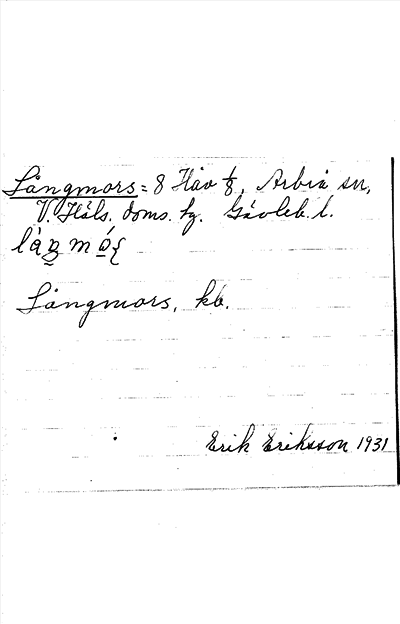 Långmors = 8 Hav 1/8, Arbrå sn,
V. Häls. doms. hg. Gävleb. l.
Långmors, kb.
Erik Eriksson 1931